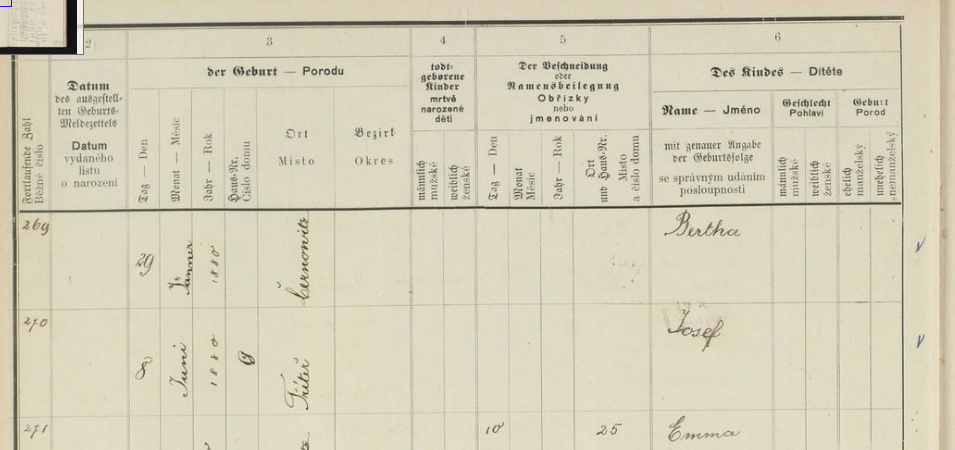 2 3 4 5 6
Fortlaufende Zahl
Běžné číslo
Datum
des ausgestell-
ten Geburts-
Meldezettels
Datum
vydaného
listu
o narození
der Geburt — Porodu
Tag — Den
Monat — Měsíc
Jahr — Rok
Haus-Nr.
Číslo domu
Ort
Místo
Bezirk
Okres
todt-
geborene
Kinder
mrtvě
narozené
děti
männlich
mužské
weiblich
ženské
Der Beschneidung
oder
Namensbeilegung
Obřízky
nebo
jmenování
Tag — Den
Monat
Měsíc
Jahr — Rok
Ort
und Haus-Nr.
Místo
a číslo domu
Des Kindes — Dítěte
Name — Jméno
mit genauer Angabe
der Geburtsfolge
se správným udáním
posloupnosti
Geschlecht
Pohlaví
männlich
mužské
weiblich
ženské
Geburt
Porod
ehelich
manželský
unehelich
nemanželský
269 29 Jänner 1880 Černowitz Bertha
270 8 Juni 1880 9 Josef
271 10 25 Emma